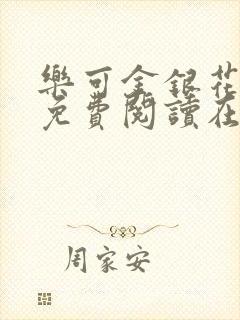 樂可金銀花
免費閱讀在
周家安